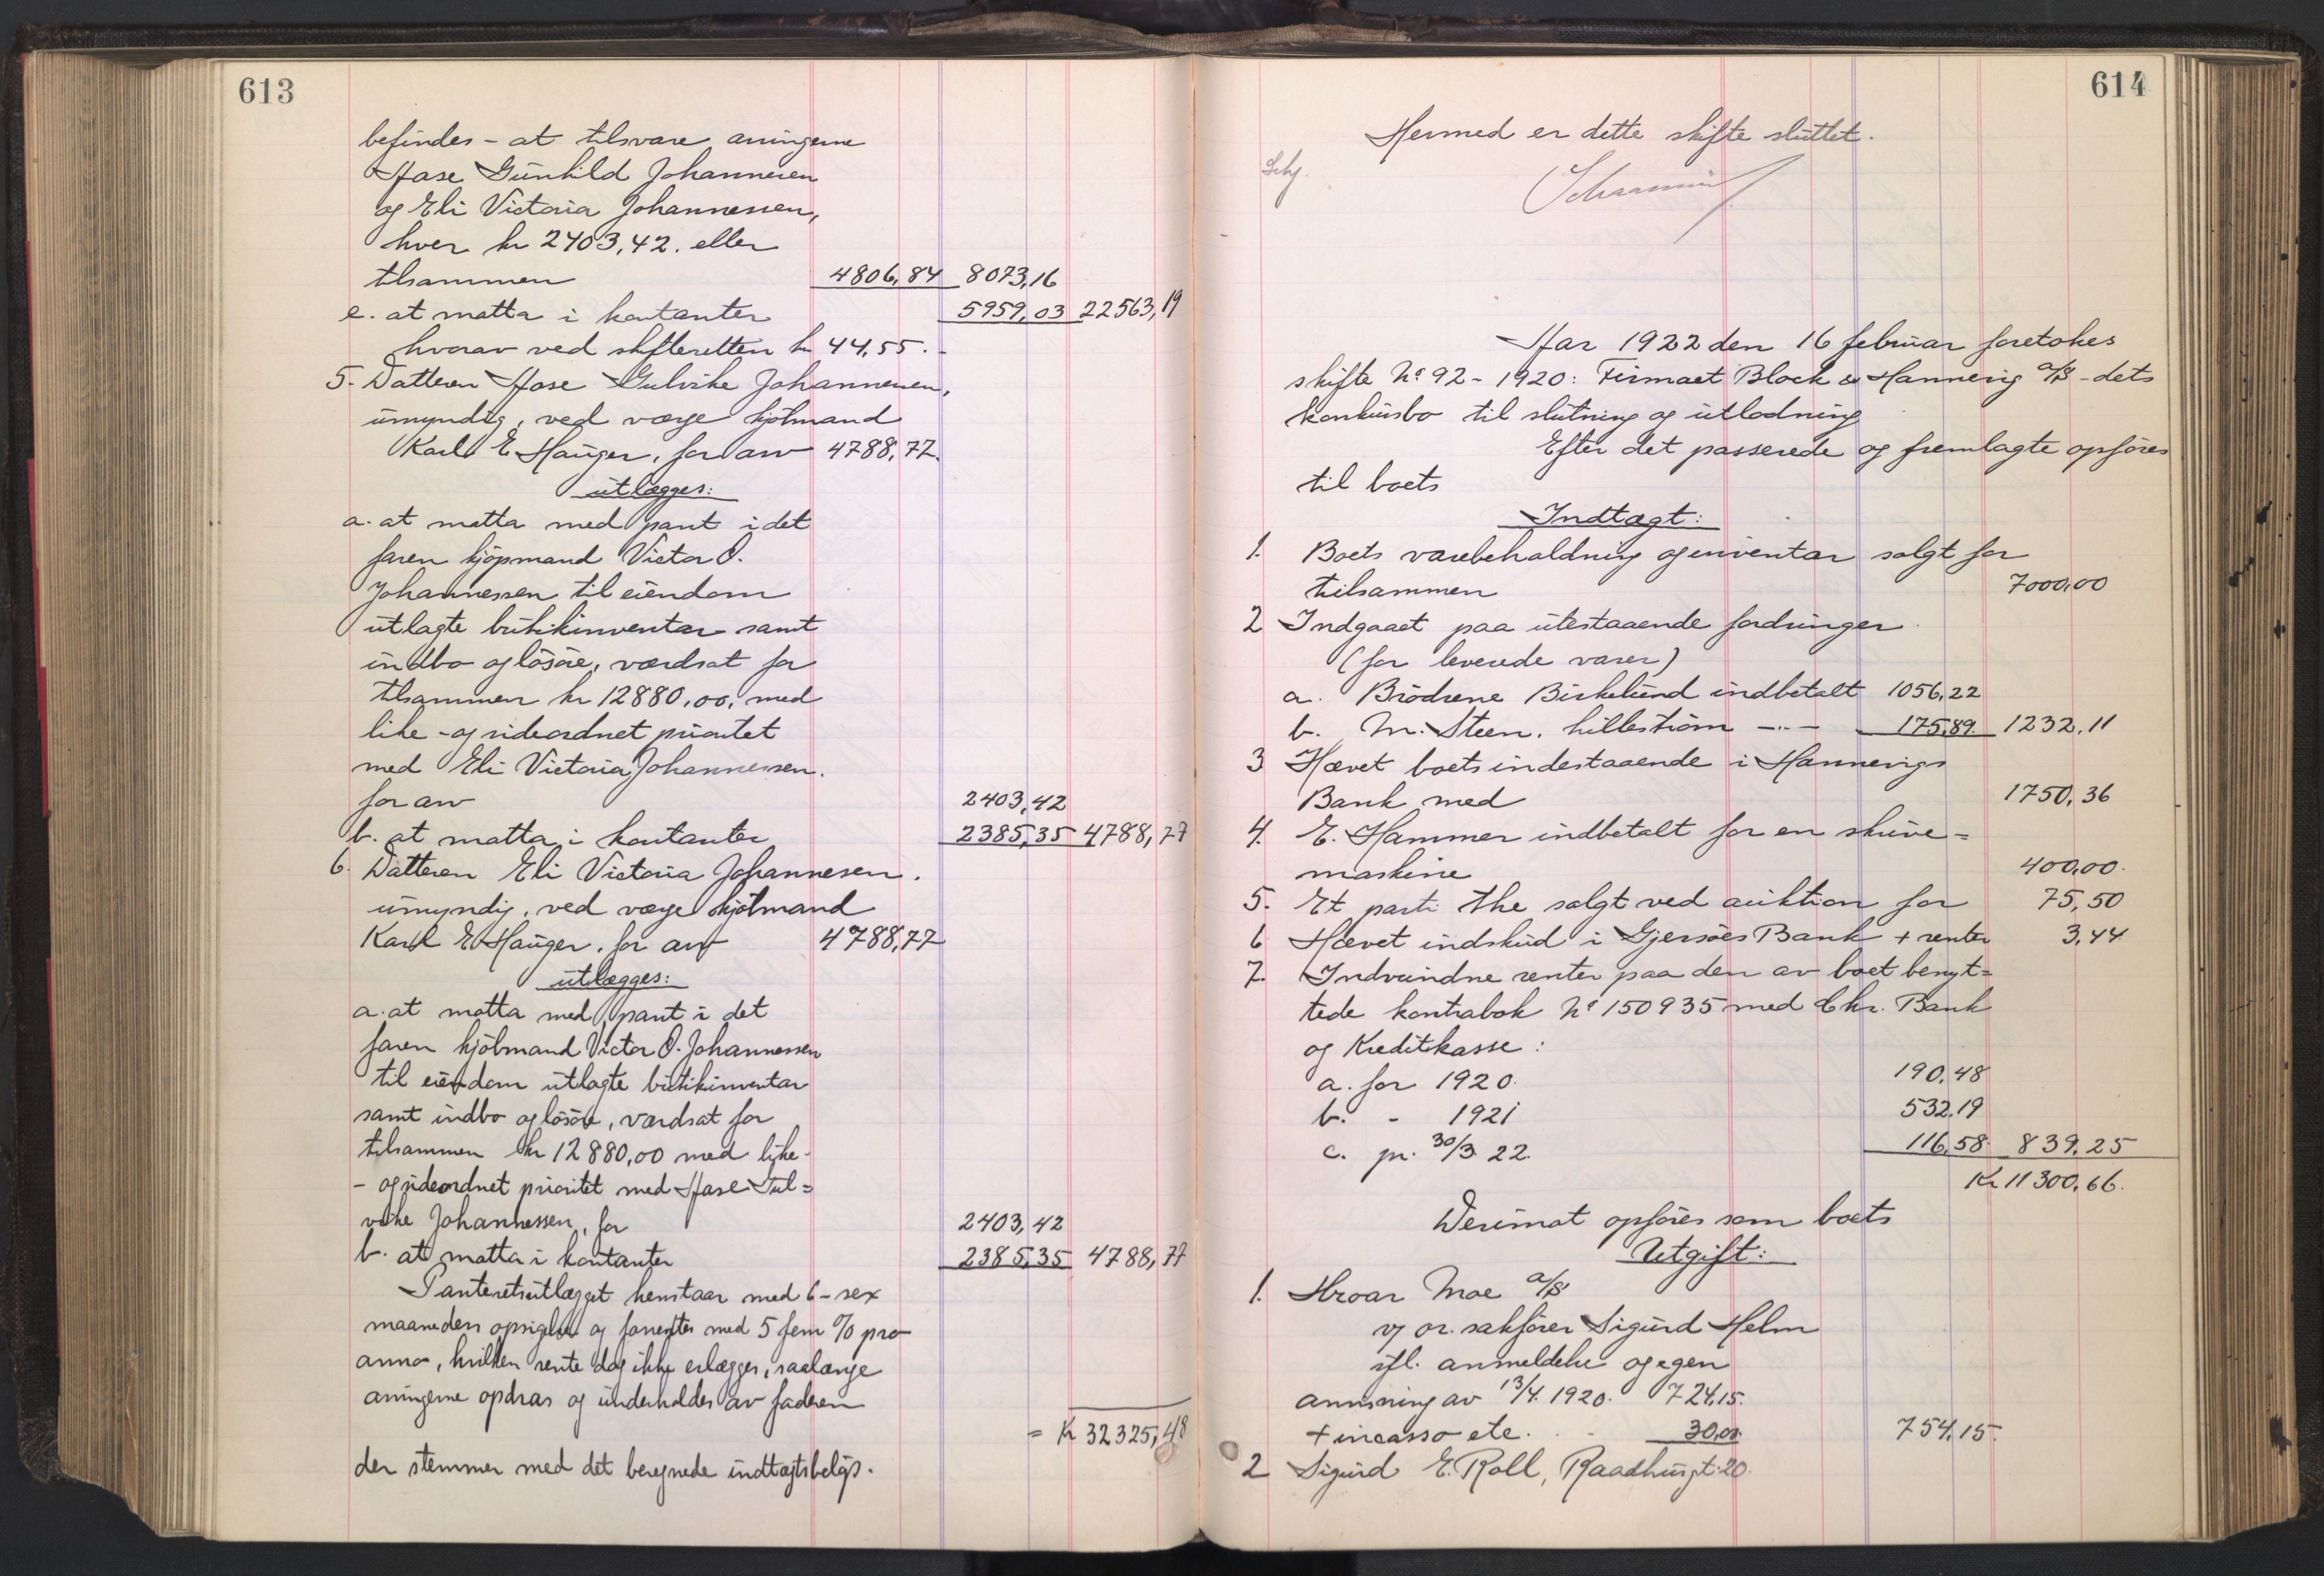 613
befindes - at tilsvare arvingerne
Aase Gunhild Johannessen
og Eli Victoria Johannessen,
hver kr 2403,42. eller
tilsammen 4806,84 8073,16
e. at motta i kontanter 5959,03 22563,19
hvorav ved skifteretten kr 44,55.
5. Datteren Aase Gulvike Johannessen,
umyndig, ved verge kjøbmand
Karl E Hauger, for arv 4788,77.
utlægges:
a. at motta med pant i det
faren kjøpmand Victor O.
Johannessen til eiendom
utlagte butikinventar samt
indbo og løsøre, værdsat for
tilsammen kr 12880,00, med
like - og sideordnet prioritet
med Eli Victoria Johannessen.
for arv 2403,42
b. at motta i kontanter 2385,35 4788,77
6. Datteren Eli Victoria Johannesen.
umyndig, ved verge kjøbmand
Karl E Hauger, for arv 4788,77
utlægges:
a. at motta med pant i det
faren kjøbmand Victor O. Johannessen
til eiendom utlagte butikinventar
samt indbo og løsøre, værdsat for
tilsammen kr 12880,00 med like-
- og sideordnet prioritet med Aase Gul=
vike Johannessen, for 2403,42
b. at motta i kontanter 2385,35 4788,77
Panteretsutlægget henstaar med 6 - sex
maaneders opsigelse og forrentes med 5 fem % pro
anno, hvilken rente dog ikke erlægges, saalænge
arvingerne opdras og underholdes av faderen
= Kr 32325,48
der stemmer med det beregnede indtægtsbeløp.
614
Hermed er dette skifte sluttet.
Aar 1922 den 16 februar foretokes
skifte No 92 - 1920: Firmaet Block & Hannevig A/S - dets
konkursbo til slutning og utlodning
Efter det passerede og fremlagte opføres
til boets
Indtægt:
1. Boets varebeholdning og inventar solgt for
tilsammen 7000,00
2 Indgaaet paa utestaaende fordringer
(for leverede varer)
a. Brødrene Birkelund indbetalt 1056,22
b. M. Steen. Lillestrøm -"- 175,89 1232,11
3 Hævet boets indestaaende i Hannevigs
Bank med 1750,36
4. E. Hammer indbetalt for en skrive=
maskine 400,00.
5. Et parti the solgt ved auktion for 75,50
6 Hævet indskud i Gjersøes Bank + renter 3,44
7. Indvundne renter paa den av boet benyt=
tede kontrabok No 150935 med Chr. Bank
og Kreditkasse:
a. for 1920. 190,48
b. - 1921 532,19
c. pr. 30/3 22. 116,58 839,25
Kr 11300,66.
Derimot opføres som boets
Utgift:
1. Hroar Moe A/S
v/ or. sakfører Sigurd Helm
ifl. anmeldelse og egen
anvisning av 13/4. 1920. 724,15.
+ incasso etc. 30,00. 754,15.
2 Sigurd E. Roll, Raadhusgt. 20.